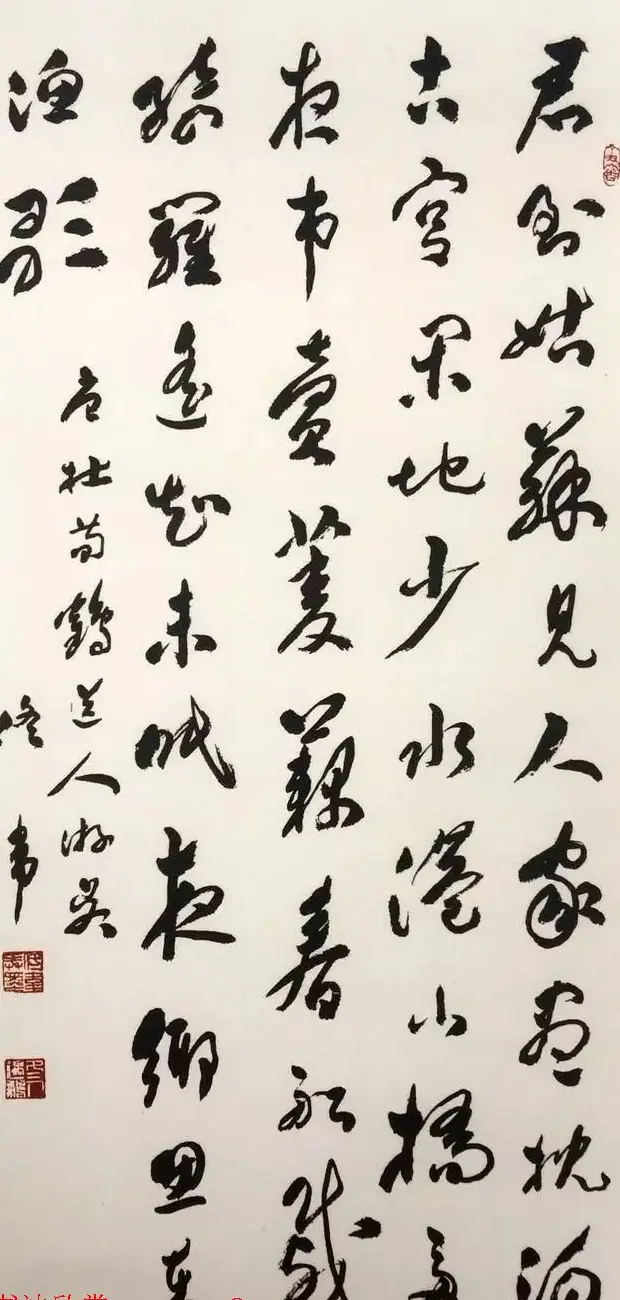 君到姑蘇見人家盡枕河
古宮閑地少水港小橋多
夜市賣菱藕春船載
綺羅遥知未眠夜鄉思在
漁歌
唐杜荀鶴送人游吳